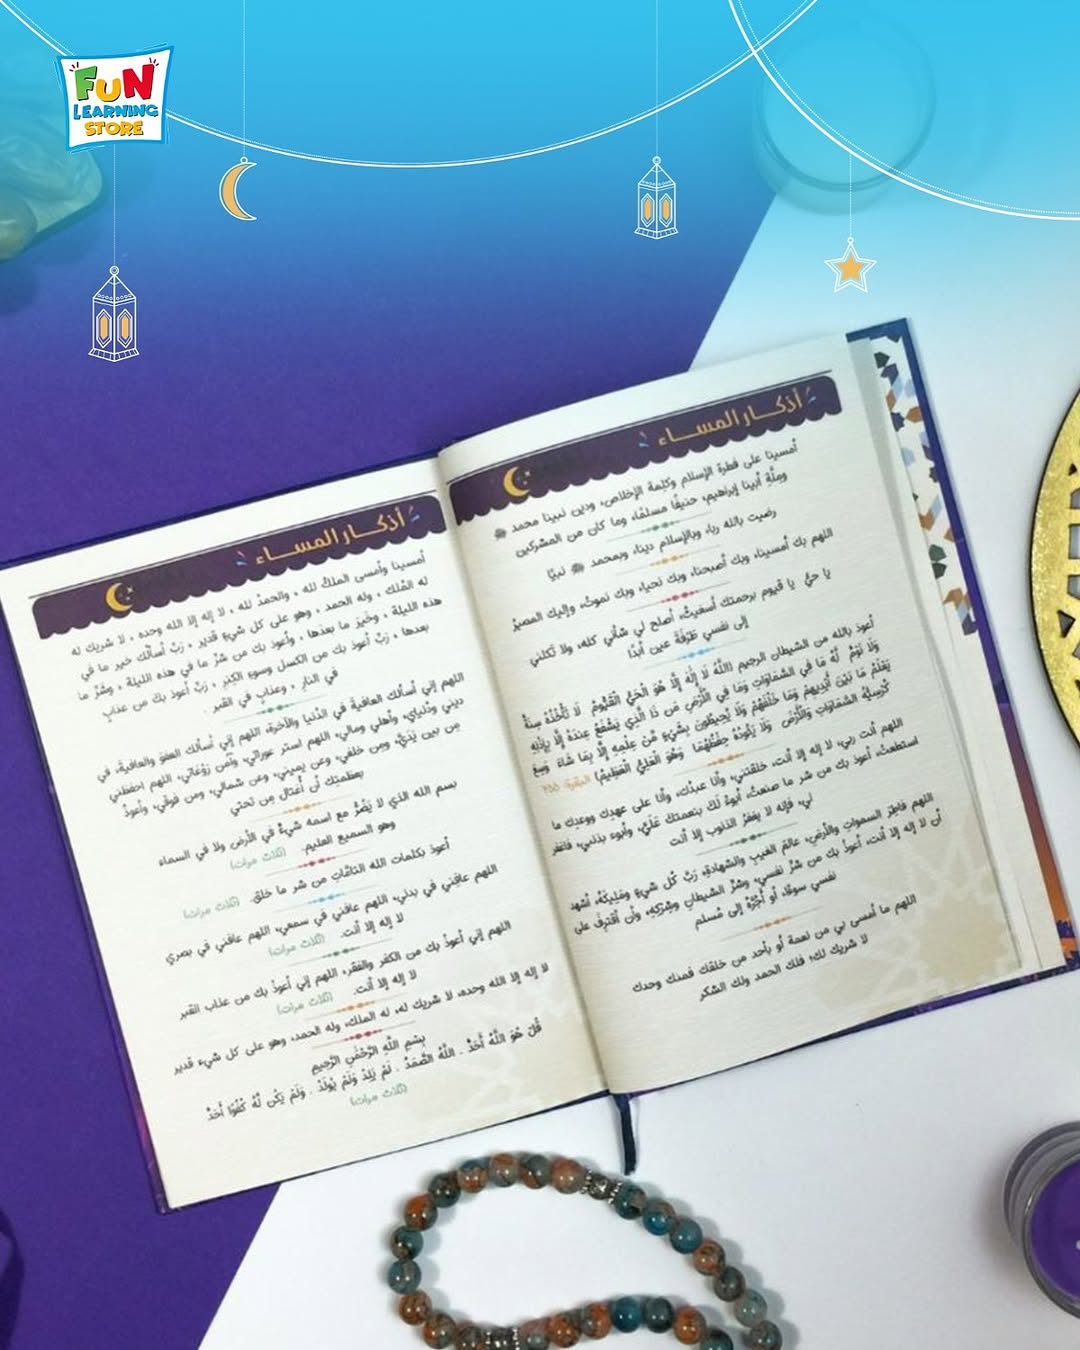 FUN
LEARNING
STORE
أذكار المساء
أمسينا على فطرة الإسلام وكلمة الإخلاص، ودين نبينا محمد ﷺ
وملّة أبينا إبراهيم، حنيفًا مسلمًا، وما كان من المشركين
رضيت بالله ربا، وبالإسلام دينا، وبمحمد ﷺ نبيًا
اللهم بك أمسينا، وبك أصبحنا، وبك نحيا، وبك نموتُ، وإليك المصيرُ
يا حيُّ يا قيوم برحمتك أستغيثُ، أصلح لي شأني كله، ولا تكلني
إلى نفسي طَرْفَةَ عين أبدًا
أعوذ بالله من الشيطان الرجيم (اللَّهُ لَا إِلَٰهَ إِلَّا هُوَ الْحَيُّ الْقَيُّومُ لَا تَأْخُذُهُ سِنَةٌ
وَلَا نَوْمٌ لَّهُ مَا فِي السَّمَاوَاتِ وَمَا فِي الْأَرْضِ مَن ذَا الَّذِي يَشْفَعُ عِندَهُ إِلَّا بِإِذْنِهِ
يَعْلَمُ مَا بَيْنَ أَيْدِيهِمْ وَمَا خَلْفَهُمْ وَلَا يُحِيطُونَ بِشَيْءٍ مِّنْ عِلْمِهِ إِلَّا بِمَا شَاءَ وَسِعَ
كُرْسِيُّهُ السَّمَاوَاتِ وَالْأَرْضَ وَلَا يَئُودُهُ حِفْظُهُمَا وَهُوَ الْعَلِيُّ الْعَظِيمُ) البقرة: ٢٥٥
اللهم أنت ربي، لا إله إلا أنت، خلقتني، وأنا عبدُك، وأنا على عهدِك ووعدِك ما
استطعتُ، أعوذ بك من شر ما صنعتُ، أبوءُ لَكَ بنعمتك عَلَيَّ، وأبوء بذنبي، فاغفر
لي، فإنه لا يغفرُ الذنوب إلا أنت
اللهم فاطِرَ السمواتِ والأرضِ، عالمَ الغيبِ والشهادةِ، رَبَّ كُل شيءٍ ومَلِيكَهُ، أشهد
أن لا إله إلا أنت، أعوذُ بك من شرِّ نفسي، وشرِّ الشيطانِ وشِركِهِ، وأن أقترِفَ على
نفسي سوءًا، أو أَجُرَّهُ إلى مُسلم
اللهم ما أمسى بي من نعمة أو بأحد من خلقك فمنك وحدك
لا شريك لك، فلك الحمد ولك الشكر
أذكار المساء
أمسينا وأمسى الملكُ لله ، والحمدُ لله ، لا إله إلا الله وحده ، لا شريك له
له المُلك ، وله الحمد ، وهو على كل شيءٍ قدير ، رَبِّ أسألُك خير ما في
هذه الليلة ، وخَيرَ ما بعدَها ، وأعوذ بك من شرِّ ما في هذه الليلة ، وشَرِّ ما
بعدها ، رَبِّ أعوذ بك من الكسل وسوءِ الكِبَرِ ، رَبِّ أعوذ بك من عذابٍ
في النارِ ، وعذابٍ في القبر .
اللهم إني أسألك العافيةَ في الدُنيا والآخرة، اللهم إني أسألك العفوَ والعافيةَ، في
ديني ودُنيايَ، وأهلي ومالي، اللهم استر عوراتي، وآمن رَوْعَاتي، اللهم احفظني
مِن بين يَدَيَّ، ومن خلفي، وعن يميني، وعن شمالي، ومن فوقي، وأعوذُ
بعظَمتِك أن أُغتال مِن تَحتي
بسم الله الذي لا يَضُرُّ مع اسمه شيءٌ في الأرض ولا في السماء
وهو السميع العليم. (ثلاث مرات)
أعوذ بكلمات الله التامّاتِ من شر ما خلق. (ثلاث مرات)
اللهم عافِني في بدني، اللهم عافني في سمعي، اللهم عافني في بصري
لا إله إلا أنت. (ثلاث مرات)
اللهم إني أعوذُ بك من الكفر والفقر، اللهم إني أعوذُ بك من عذاب القبر
لا إله إلا أنت. (ثلاث مرات)
لا إله إلا الله وحده، لا شريك له، له الملك، وله الحمد، وهو على كل شيء قدير
بِسْمِ اللَّهِ الرَّحْمَٰنِ الرَّحِيمِ
قُلْ هُوَ اللَّهُ أَحَدٌ . اللَّهُ الصَّمَدُ . لَمْ يَلِدْ وَلَمْ يُولَدْ . وَلَمْ يَكُن لَّهُ كُفُوًا أَحَدٌ
(ثلاث مرات)